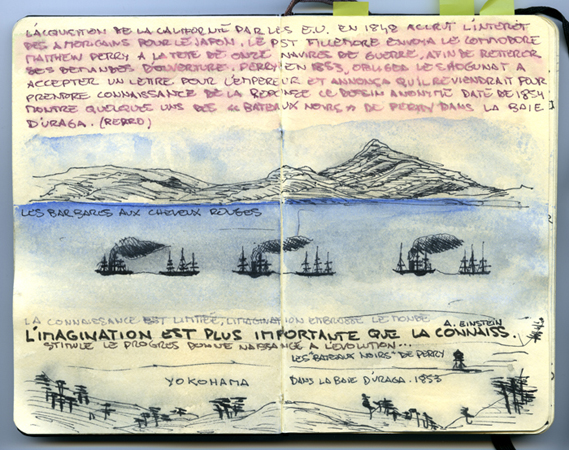 L'ACQUISITION DE LA CALIFORNIE PAR LES E.U. EN 1848 ACCRUT L'INTÉRÊT
DES AMERICAINS POUR LE JAPON. LE PST FILLEMORE ENVOYA LE COMMODORE
MATTHEW PERRY A LA TETE DE ONZE NAVIRES DE GUERRE, AFIN DE REITERER
SES DEMANDES D'OUVERTURE. PERRY EN 1853, OBLIGEA LE SHOGUNAT A
ACCEPTER UN LETTRE POUR L'EMPEREUR ET ANNONÇA QU'IL REVIENDRAIT POUR
PRENDRE CONNAISSANCE DE LA REPONSE. CE DESSIN ANONYME DATÉ DE 1854
MONTRE QUELQUES UNS DES "BATEAUX NOIRS" DE PERRY DANS LA BAIE
D'URAGA.
LES BARBARES AUX CHEVEUX ROUGES
LA CONNAISSANCE EST LIMITÉE, L'IMAGINATION EMBRASSE LE MONDE
A. EINSTEIN
L'IMAGINATION EST PLUS IMPORTANTE QUE LA CONNAISS.
STIMULE LE PROGRES DONNE NAISSANCE A L'EVOLUTION...
LES "BATEAUX NOIRS" DE PERRY
YOKOHAMA
DANS LA BAIE D'URAGA. 1853